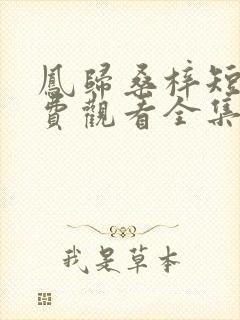 鳳歸桑梓短
費觀看全集
我是草本